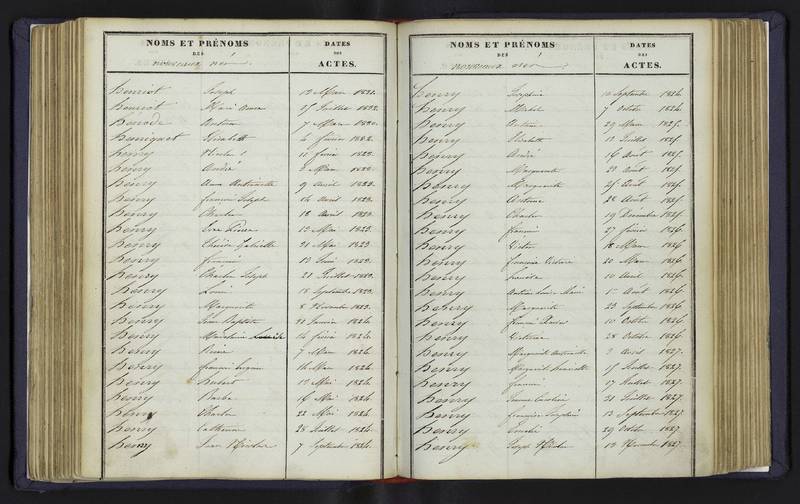 NOMS ET PRÉNOMS
DES
nouveaux nés
DATES
DES
ACTES.
henriot Joseph 12 Mars 1821.
henriot 25 Juillet 1822.
7 Mars 1820.
Elisabeth 4 février 1822.
henry Nicolas 11 février 1823.
henry André 3 Mars 1823.
henry Anne Antoinette 9 avril 1823.
henry françois Joseph 14 avril 1823.
henry Charles 18 avril 1823.
henry 12 Mai 1823.
henry 21 Mai 1823
henry françois 13 Juin 1823.
henry Charles Joseph 21 Juillet 1823.
henry Louis 18 Septembre 1823.
henry Marguerite 8 Novembre 1823.
henry Jean Baptiste 21 Janvier 1824.
henry Madeleine 14 février 1824.
henry Pierre 7 Mars 1824.
henry françois Eugène 14 Mars 1824
henry hubert 12 Mai 1824.
henry Barbe 16 Mai 1824
henry Charles 22 Mai 1824
henry Catherine 28 Juillet 1824.
henry Jean Nicolas 7 Septembre 1824.
NOMS ET PRÉNOMS
DES
nouveaux nés
DATES
DES
ACTES.
henry Joséphine 10 Septembre 1824
henry Michel 7 Octobre 1824
henry Antoine 29 Mars 1825.
henry Elisabeth 12 Juillet 1825
henry André 16 Août 1825.
henry Marguerite 23 Août 1825
henry Marguerite 25 Août 1825.
henry Antoine 28 Août 1825.
henry Charles 19 Décembre 1825
henry françois 27 février 1826.
henry Victor 18 Mars 1826
henry françoise Victoire 20 Mars 1826
henry 10 Avril 1826.
henry Antoine Louis Marie 1er Août 1826
henry Marguerite 23 Septembre 1826
henry 10 Octobre 1826
henry Victoire 28 Octobre 1826
henry Marguerite Antoinette 3 Avril 1827.
henry Marguerite 15 Juillet 1827.
henry françois 17 Juillet 1827.
henry Jeanne Caroline 21 Juillet 1827.
henry françoise Joséphine 13 Septembre 1827.
henry 29 Octobre 1827
henry Joseph Nicolas 13 Novembre 1827.